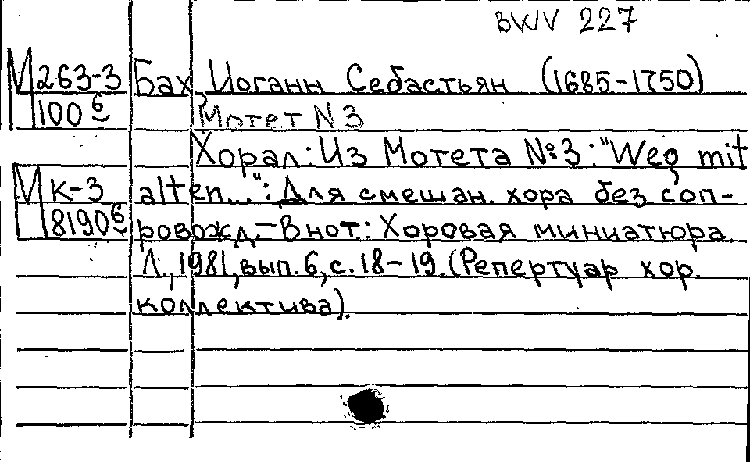 BWV 227
М263-3 Бах, Иоганн Себастьян (1685-1750)
100б Мотет N 3
Хорал: Из Мотета №3: "Weg mit
М К-3 alten...": Для смешан. хора без соп-
8190б ровожд.- В нот.: Хоровая миниатюра
Л., 1981, вып. 6, с. 18-19. (Репертуар хор.
коллектива).